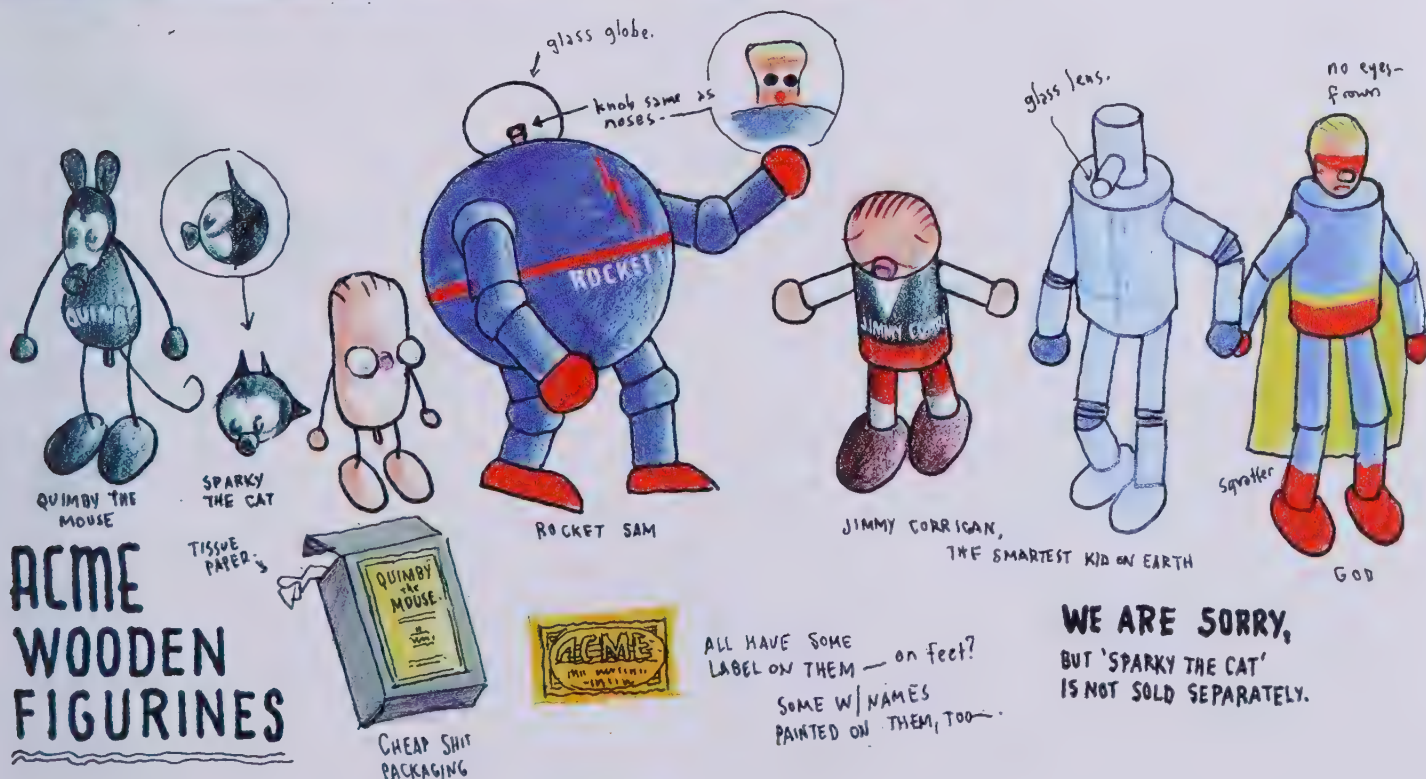 glass globe.
knob same as
noses-
glass lens.
no eyes-
frown
QUIMBY
ROCKET
JIMMY
squatter
QUIMBY THE
MOUSE
SPARKY
THE CAT
ROCKET SAM
JIMMY CORRIGAN,
THE SMARTEST KID ON EARTH
GOD
TISSUE
PAPER-
ACME
WOODEN
FIGURINES
QUIMBY
the
MOUSE.
CHEAP SHIT
PACKAGING
ACME
ALL HAVE SOME
LABEL ON THEM — on feet?
SOME W/NAMES
PAINTED ON THEM, TOO—.
WE ARE SORRY,
BUT 'SPARKY THE CAT'
IS NOT SOLD SEPARATELY.